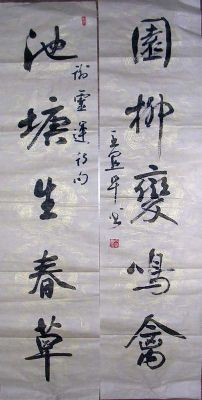 池塘生春草
謝靈運詩句
園柳變鳴禽
王宜早书